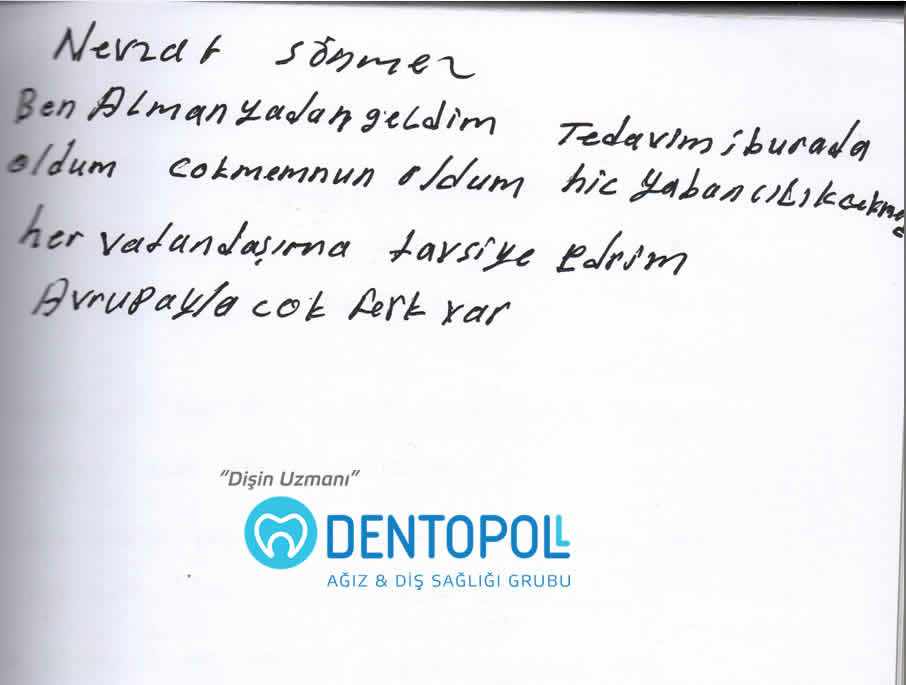 Nevzat Sönmez
Ben Almanyadan geldim Tedavimi burada
oldum cokmemnun oldum hic yabancılık
her vatandaşıma tavsiye edrim
Avrupayla cok ferk var
"Dişin Uzmanı"
DENTOPOLL
AĞIZ & DİŞ SAĞLIĞI GRUBU